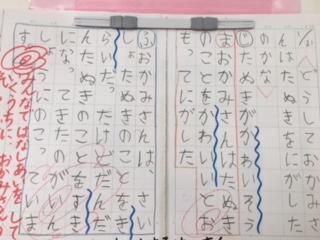 1/21 どうしておかみさ
んはたぬきをにがした
のかな
じ たぬきがかわいそう
ま おかみさんはたぬき
のことをかわいいとお
もってにがした
ふ おかみさんは、さい
しょたぬきのことをき
らいだ だけどだ
んたぬきのことをすき
になってきたの
しょうにのこっていま
す
みんなではなしあいをして